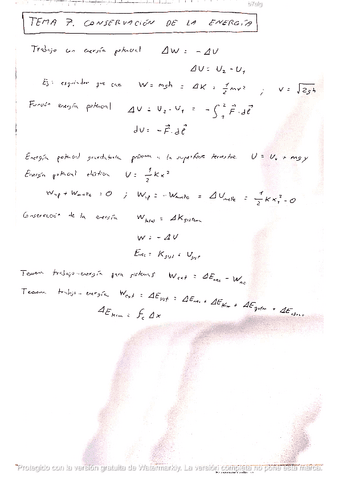 TEMA 7. CONSERVACIÓN DE LA ENERGÍA
Trabajo con energía potencial ΔW = -ΔU
ΔU = U₂ - U₁
Ej: esquiador que cae W = mgh = ΔK = 1/2 mv² ; v = √2gh
Función energía potencial ΔU = U₂ - U₁ = -∫₁² F⃗·dl⃗
dU = -F⃗·dl⃗
Energía potencial gravitatoria próxima a la superficie terrestre U = U₀ + mgy
Energía potencial elástica U = 1/2 Kx²
+ W muelle = 0 ; = -W muelle = ΔU muelle = 1/2 Kx₁² - 0
Conservación de la energía = ΔK sistema
W = -ΔU
E mec = K sist + U sist
Teorema trabajo-energía para sistemas W ext = ΔE mec - W nc
Teorema trabajo-energía W ext = ΔE sist = ΔE mec + ΔE térm + ΔE quím + ΔE otras
ΔE térm = f c Δx
Protegido con la versión gratuita de Watermarkly. La versión completa no pone esta marca.